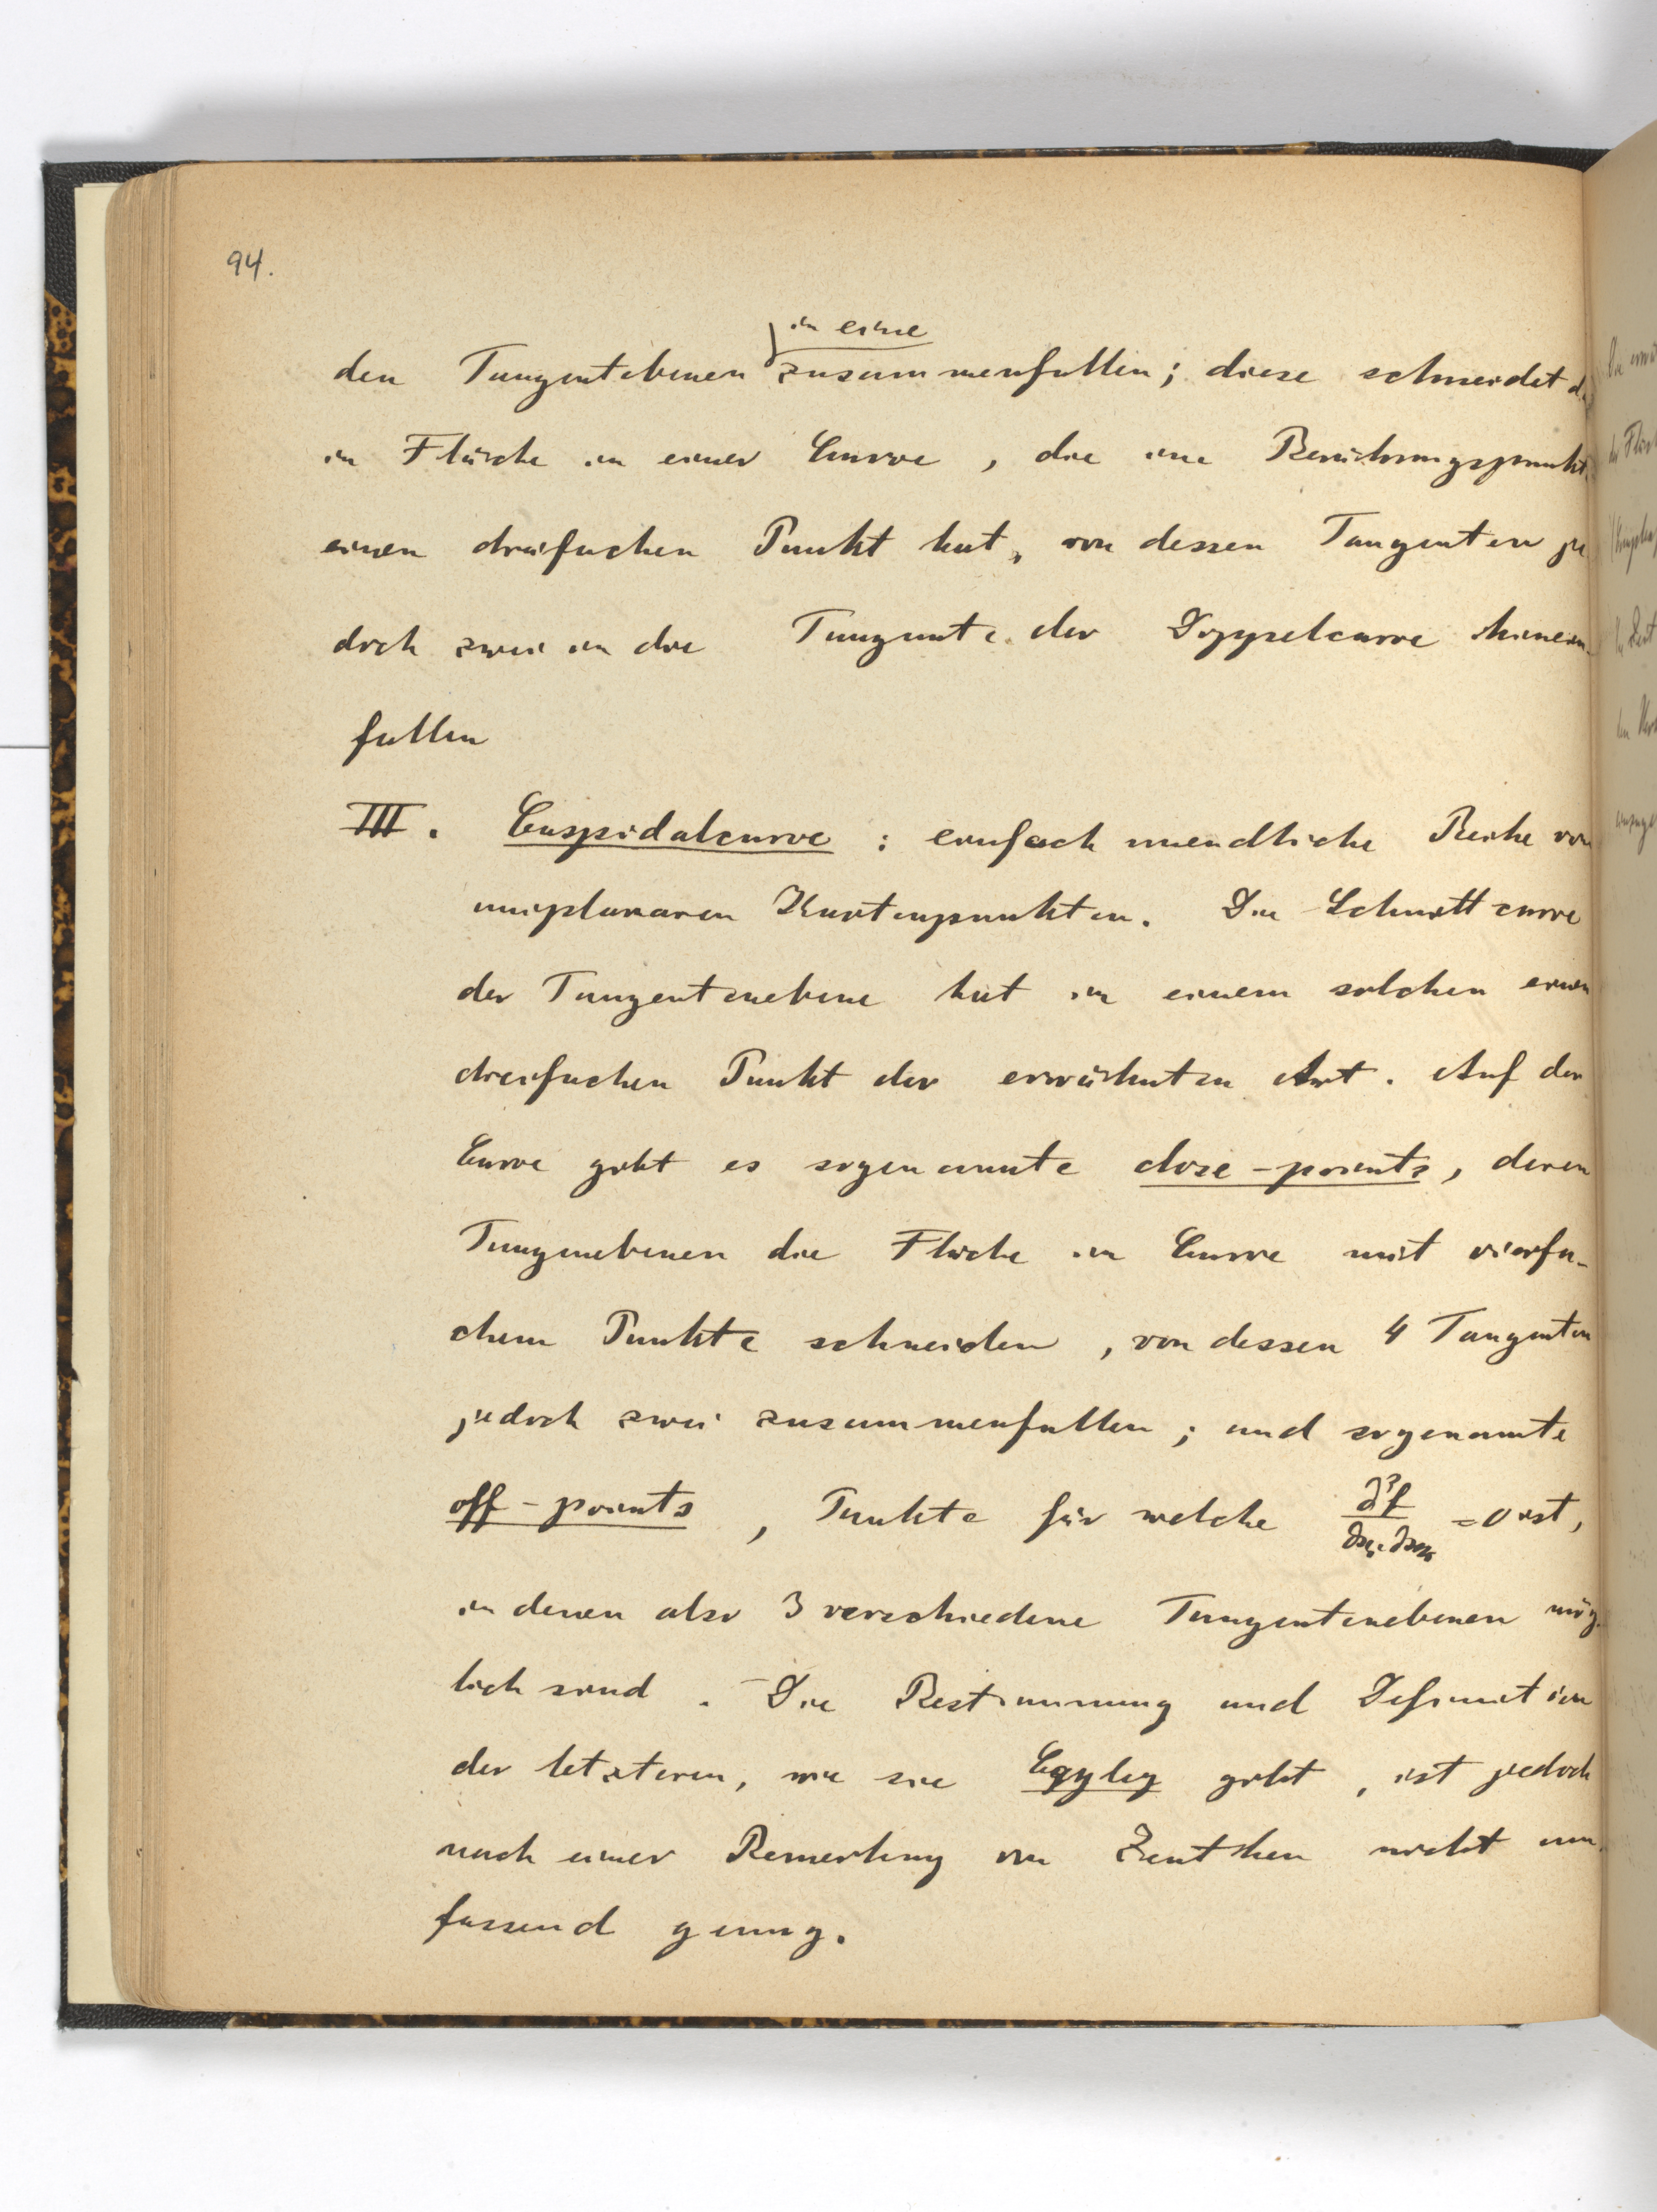 94.
in eine
den Tangentebenen zusammenfallen; diese schneidet
in Fläche in einer Curve, die im Berührungspunkt
einen dreifachen Punkt hat, von dessen Tangenten je
doch zwei in die Tangente der Doppelcurve hinein-
fallen
III. Cuspidalcurve: einfach unendliche Reihe von
uniplanaren Knotenpunkten. Die Schnittcurve
der Tangentenebene hat in einem solchen einen
dreifachen Punkt der erwähnten Art. Auf der
Curve gibt es sogenannte close-points, deren
Tangenebenen die Fläche in Curve mit vierfa-
chem Punkte schneiden, von dessen 4 Tangenten
jedoch zwei zusammenfallen; und sogenamte
off-points, Punkte für welche ∂²f/∂xᵢ∂xₖ = 0 ist,
in denen also 3 verschiedene Tangentenebenen mög-
lich sind. Die Bestimmung und Definition
der letzteren, wie sie Cayley gibt, ist jedoch
nach einer Bemerkung von Zeuthen nicht um-
fassend genug.